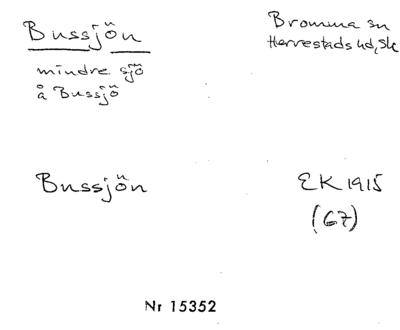 Bussjön
Bromma sn
Herrestads hd, Sk
mindre sjö
å Bussjö
Bussjön
EK 1915
(67)
Nr 15352